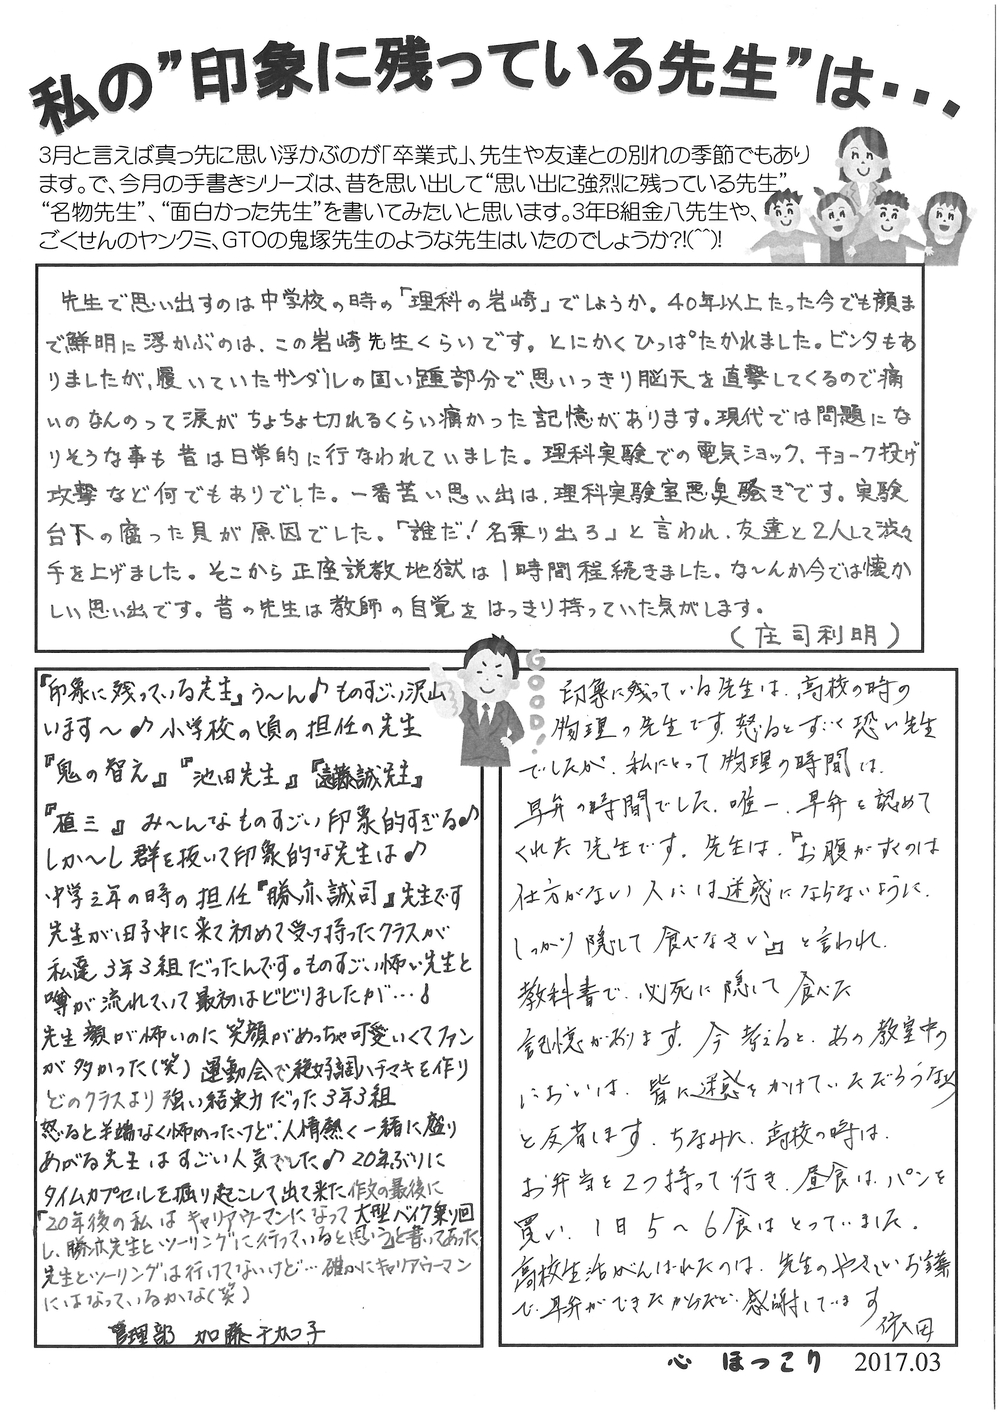 私の”印象に残っている先生”は・・・
3月と言えば真っ先に思い浮かぶのが「卒業式」、先生や友達との別れの季節でもあり
ます。で、今月の手書きシリーズは、昔を思い出して“思い出に強烈に残っている先生”
“名物先生”、“面白かった先生”を書いてみたいと思います。3年B組金八先生や、
ごくせんのヤンクミ、GTOの鬼塚先生のような先生はいたのでしょうか?!(^^)!
先生で思い出すのは中学校の時の「理科の岩崎」でしょうか。40年以上たった今でも顔ま
で鮮明に浮かぶのは、この岩崎先生くらいです。とにかくひっぱたかれました。ビンタもあ
りましたが、履いていたサンダルの固い踵部分で思いっきり脳天を直撃してくるので痛
いのなんのって涙がちょちょ切れるくらい痛かった記憶があります。現代では問題にな
りそうな事も昔は日常的に行なわれていました。理科実験での電気ショック、チョーク投げ
攻撃など何でもありでした。一番苦い思い出は、理科実験室悪臭騒ぎです。実験
台下の腐った貝が原因でした。「誰だ!名乗り出ろ」と言われ、友達と2人して渋々
手を上げました。そこから正座説教地獄は1時間程続きました。な〜んか今では懐か
しい思い出です。昔の先生は教師の自覚をはっきり持っていた気がします。
(庄司利明)
GOOD!
『印象に残っている先生』う〜ん♪ものすごい沢山
います〜♪小学校の頃の担任の先生
『鬼の智え』『池田先生』『遠藤誠先生』
『植三』み〜んなものすごい印象的すぎる♪
しか〜し群を抜いて印象的な先生は♪
中学三年の時の担任『勝亦誠司』先生です
先生が田子中に来て初めて受け持ったクラスが
私達3年3組だったんです。ものすごい怖い先生と
噂が流れていて最初はビビりましたが…♪
先生顔が怖いのに笑顔がめっちゃ可愛いくてファン
が多かった(笑)運動会で絶好調ハチマキを作り
どのクラスより強い結束力だった3年3組
怒ると半端なく怖めったけど、人情熱く一緒に盛り
あがる先生はすごい人気でした♪20年ぶりに
タイムカプセルを掘り起こして出て来た作文の最後に
「20年後の私はキャリアウーマンになって大型バイク乗り回
し、勝亦先生とツーリングに行っていると思う」と書いてあった
先生とツーリングは行けてないけど…確かにキャリアウーマン
にはなっているかな(笑)
管理部 加藤千加子
印象に残っている先生は、高校の時の
物理の先生です。怒るとすごく恐い先生
でしたが、私にとって物理の時間は、
早弁の時間でした。唯一、早弁を認めて
くれた先生です。先生は、『お腹がすくのは
仕方がない人には迷惑にならないように、
しっかり隠して食べなさい』と言われ、
教科書で、必死に隠して食べた
記憶があります。今考えると、あの教室中の
においは、皆に迷惑をかけていただろうなぁ
と反省します。ちなみに、高校の時は、
お弁当を2つ持って行き、昼食は、パンを
買い、1日5〜6食はとっていました。
高校生活がんばれたのは、先生のやさしいお言葉
で、早弁ができたからだと、感謝しています
依田
心 ほっこり 2017.03